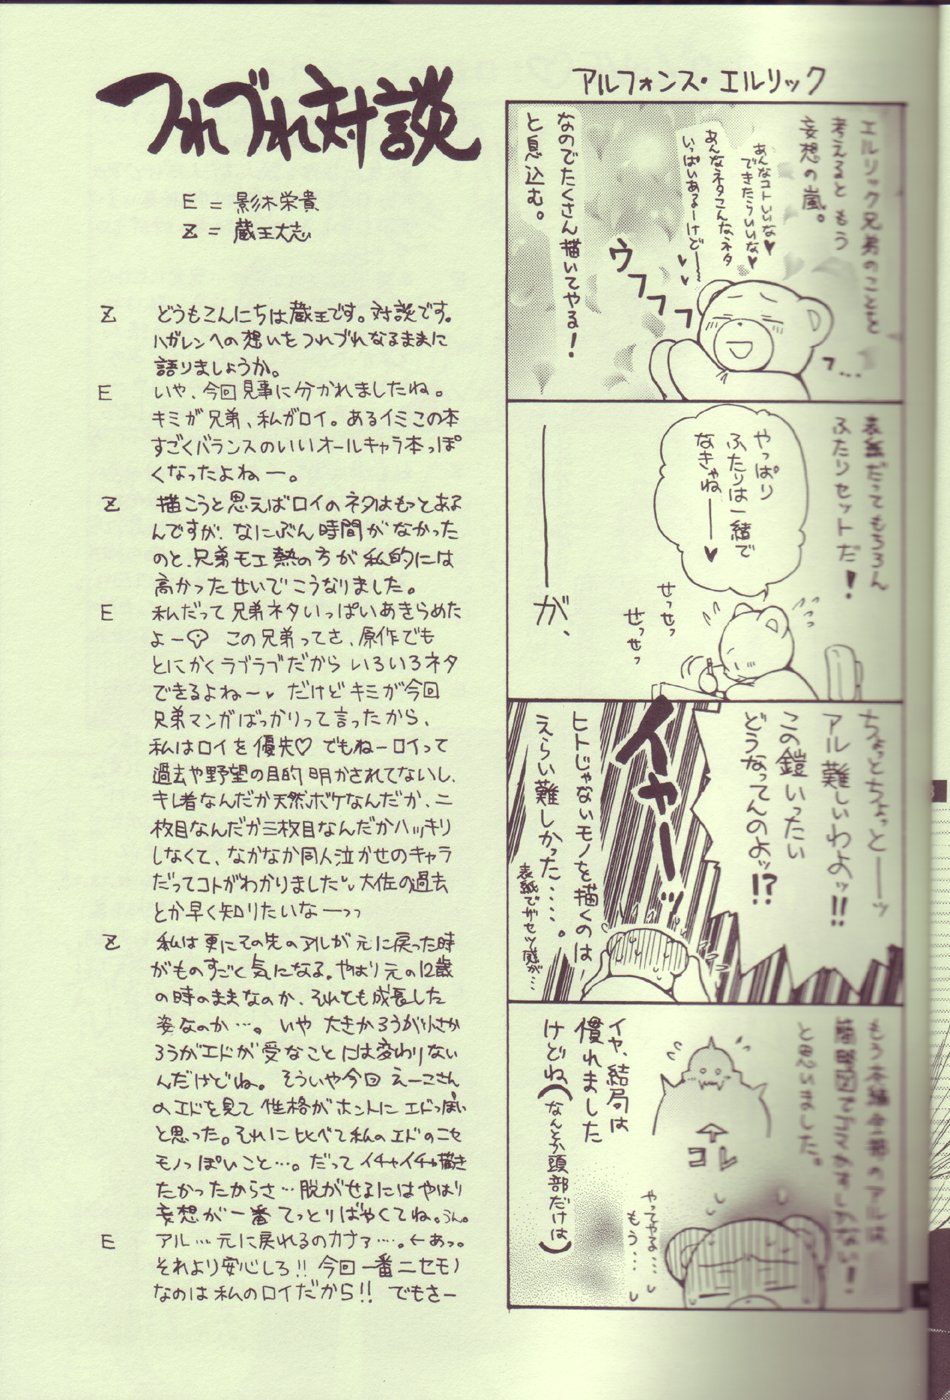 アルフォンス・エルリック
エルリック兄弟のことを
考えると もう
妄想の嵐。
あんなコトいいな♥
できたらいいな♥
あんなネタこんなネタ
いっぱいあるーけどー
ウフフフフ
フ…
なのでたくさん描いてやる!
と息込む。
表紙だってもちろん
ふたりセットだ!
やっぱり
ふたりは一緒で
なきゃねーー♥
せっせっ
せっせっ
――が、
ちょっとちょっとーーッ
アル難しいわよッ!!
この鎧いったい
どうなってんのよッ!?
イヤーーッ
ヒトじゃないモノを描くのは
えらい難しかった‥‥。
表紙でザセツ感が…
もう本編全部のアルは
簡略図でゴマかすしかない!
と思いました。
コレ
イヤ、結局は
慣れました
けどね(なんとか頭部だけは)
やってやる…
もう…
つれづれ対談
E = 影木栄貴
Z = 蔵王大志
Z どうもこんにちは蔵王です。対談です。
ハガレンへの想いをつれづれなるままに
語りましょうか。
E いや、今回見事に分かれましたね。
キミが兄弟、私がロイ。あるイミこの本
すごくバランスのいいオールキャラ本っぽ
くなったよねー。
Z 描こうと思えばロイのネタはもっとあるよ
んですが、なにぶん時間がなかった
のと、兄弟モエ熱の方が私的には
高かったせいでこうなりました。
E 私だって兄弟ネタいっぱいあきらめた
よー この兄弟ってさ、原作でも
とにかくラブラブだから いろいろネタ
できるよねー♥ だけど キミが今回
兄弟マンガばっかりって言ったから、
私はロイを優先♡ でもねーロイって
過去や野望の目的 明かされてないし、
キレ者なんだか天然ボケなんだか、二
枚目なんだか三枚目なんだかハッキリ
しなくて、なかなか同人泣かせのキャラ
だってコトがわかりました 大佐の過去
とか早く知りたいなーっっ
Z 私は更にその先のアルが元に戻った時
がものすごく気になる。やはり元の12歳
の時のままなのか、それとも成長した
姿なのか…。いや 大きかろうが小さか
ろうがエドが受なことには変わりない
んだけどね。そういや今回 えーこさん
のエドを見て 性格がホントに エドっぽい
と思った。それに比べて私のエドのニセ
モノっぽいこと…。だってイチャイチャ描き
たかったからさ…脱がせるにはやはり
妄想が一番てっとりばやくてね。うん。
E アル…元に戻れるのカナァ…。←あっ。
それより安心しろ!! 今回一番ニセモノ
なのは私のロイだから!! でもさー